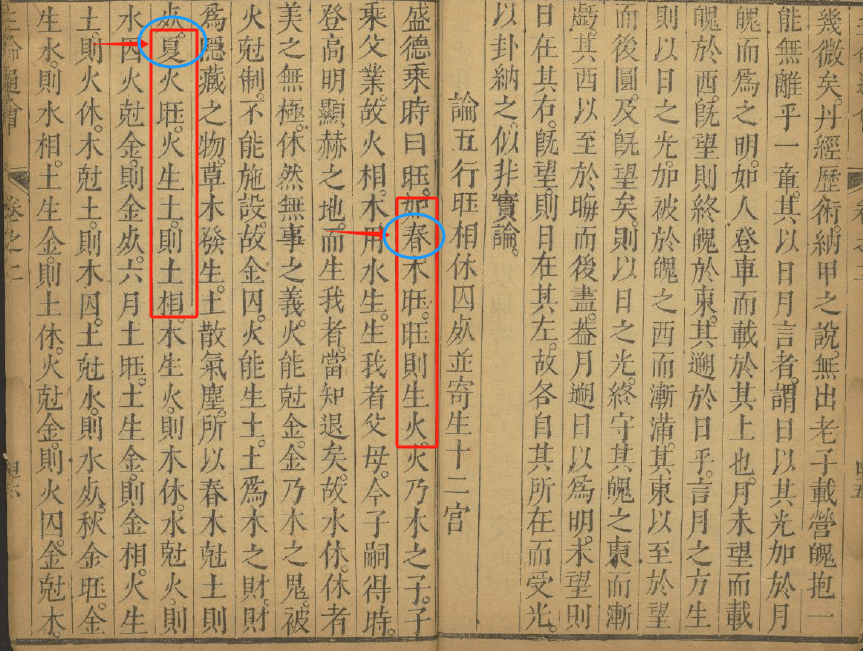 幾微矣。丹經歷術。納甲之說。無出老子載營魄抱一
能無離乎一章。其以日月言者。謂日以其光加於月
魄而爲之明。如人登車而載於其上也。月未望而載
魄於西。旣望則終魄於東。其遡於日乎。言月之方生
則以日之光。加被於魄之西而漸滿。其東以至於望
而後圓。及旣望矣。則以日之光。終守其魄之東而漸
虧。其西以至於晦而後盡。葢月遡日以爲明。未望則
日在其右。旣望則日在其左。故各自其所在而受光。
以卦納之。似非實論。
論五行旺相休囚死並寄生十二宮
盛德乘時曰旺。如春木旺。旺則生火。火乃木之子。子
乘父業。故火相。木用水生。生我者父母。今子嗣得時。
登高明顯赫之地。而生我者。當知退矣。故水休。休者
美之無極。休然無事之義。火能尅金。金乃木之鬼。被
火尅制。不能施設。故金囚。火能生土。土爲木之財。財
爲隱藏之物。草木發生。土散氣塵。所以春木尅土則
死。夏火旺。火生土。則土相。木生火。則木休。水尅火。則
水囚。火尅金。則金死。六月土旺。土生金。則金相。火生
土。則火休。木尅土。則木囚。土尅水。則水死。秋金旺。金
生水。則水相。土生金。則土休。火尅金。則火囚。金尅木。
卷之二